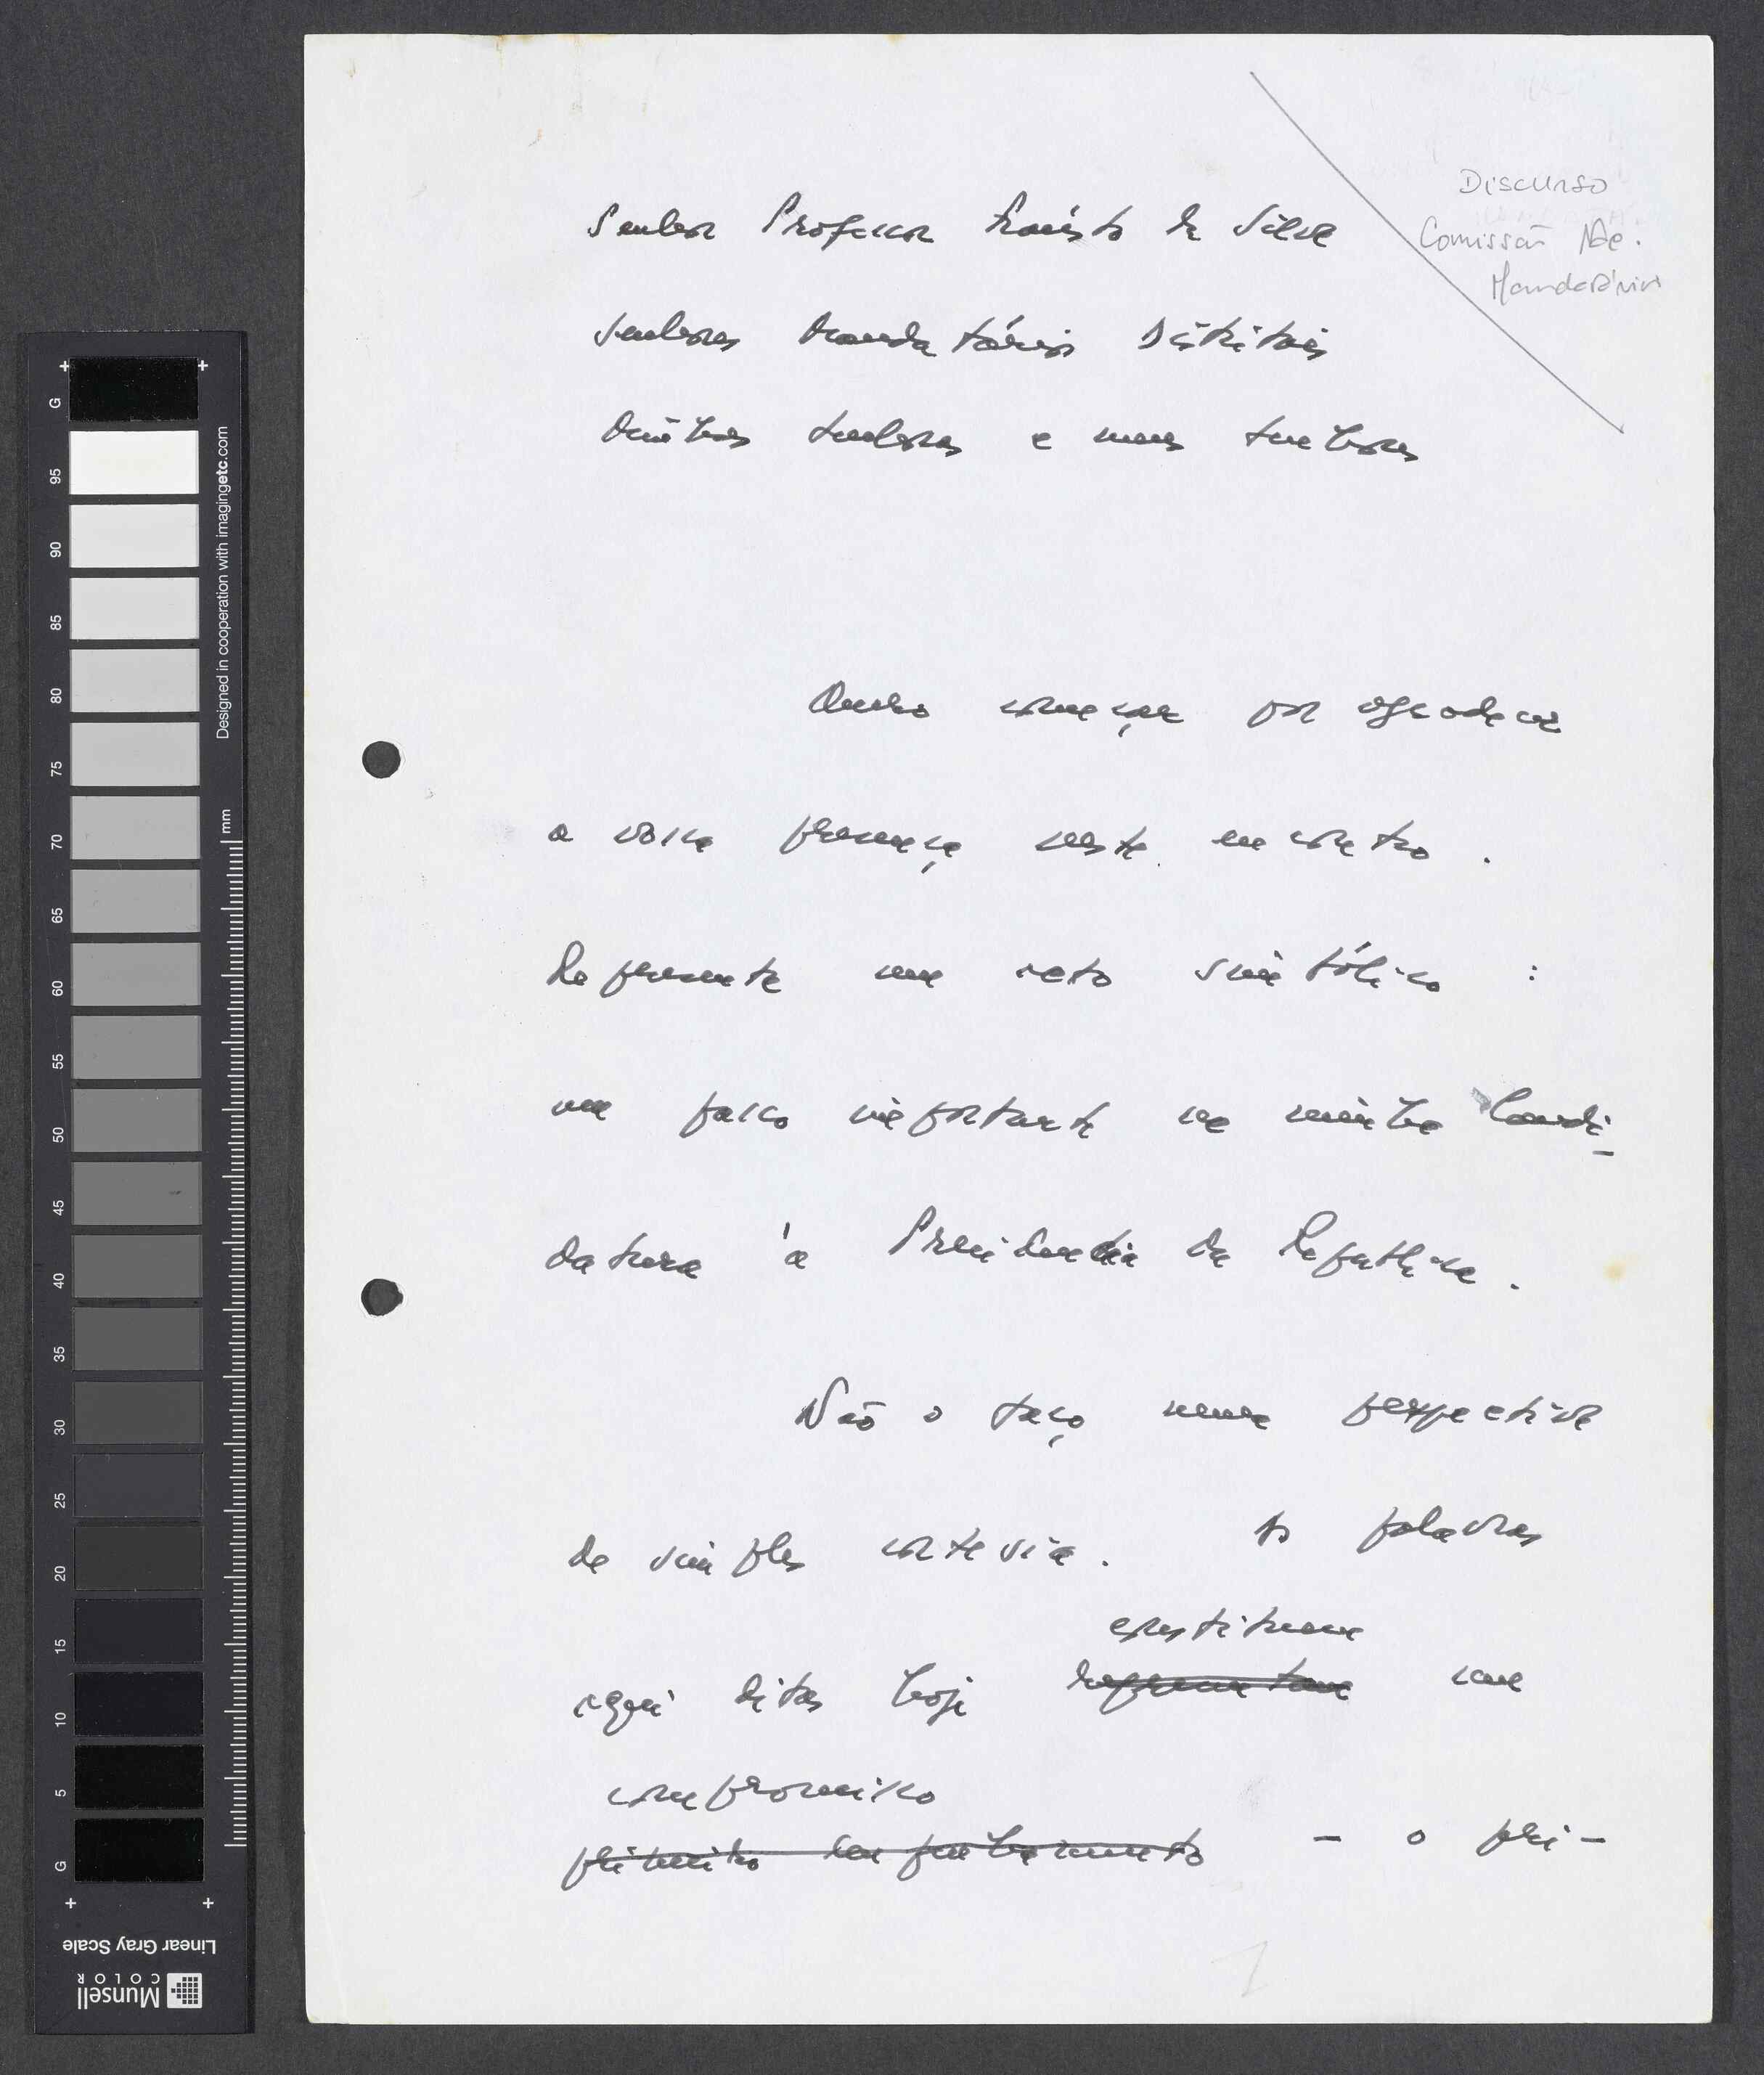 Discurso
Comissão Nac.
Mandatários
Senhor Professor da Silva
Senhores Mandatários Distritais
Minhas senhoras e meus senhores
Quero começar por agradecer
a vossa presença neste encontro.
Representa um acto simbólico :
um passo importante na minha Candi-
datura à Presidência da República.
Não o faço numa perspectiva
de simples cortesia. As palavras
constituem
aqui ditas hoje representam um
compromisso
primeiro - o pri-
1
G
95
90
85
80
75
70
65
60
55
50
45
40
35
30
25
20
15
10
5
G
mm
Designed in cooperation with imagingetc.com
Linear Gray Scale
Munsell
COLOR